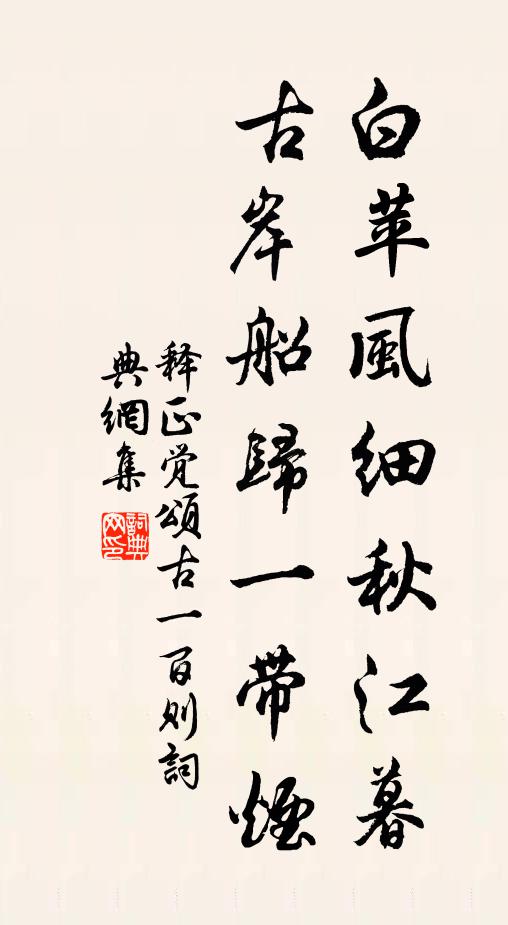 白苹風细秋江暮
古岸船歸一帶煙
释正觉頌古一百则詞
典網集
詞典网印